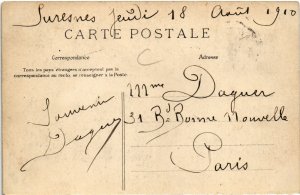 Suresnes Jeudi 18 Août 1910
CARTE POSTALE
Correspondance
Adresse
Tous les pays étrangers n'acceptent pas la
correspondance au recto, se renseigner à la Poste
Souvenir
Daguer
Mme Daguer
31 Bd Bonne Nouvelle
Paris